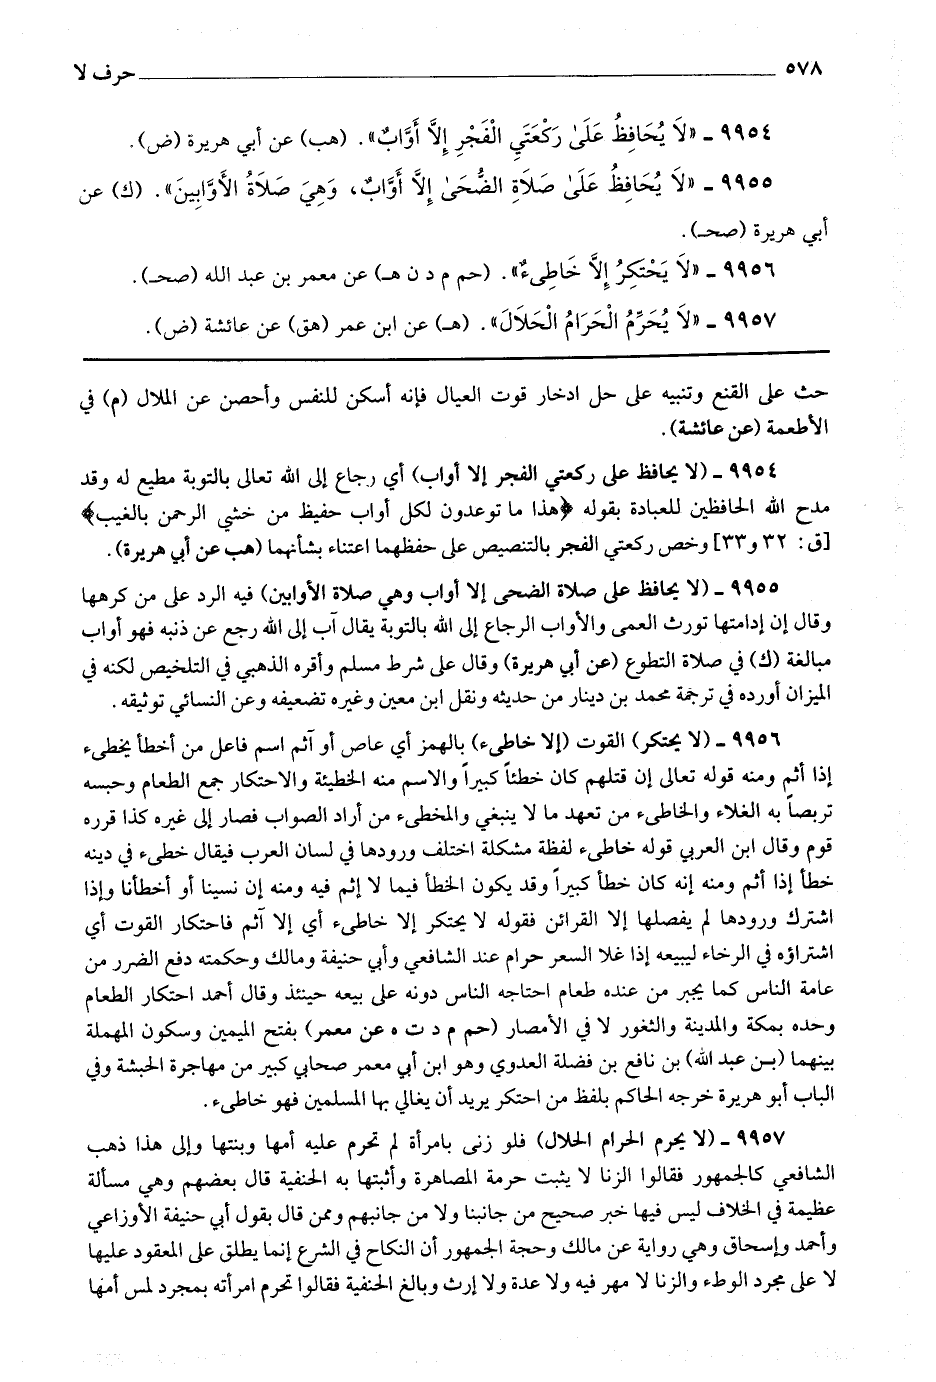 ٥٧٨ حرف لا
٩٩٥٤ ـ «لاَ يُحَافِظُ عَلَىٰ رَكْعَتَيِ الْفَجْرِ إِلاَّ أَوَّابٌ». (هب) عن أبي هريرة (ض).
٩٩٥٥ ـ «لاَ يُحَافِظُ عَلَىٰ صَلاَةِ الضُّحَىٰ إِلاَّ أَوَّابٌ، وَهِيَ صَلاَةُ الأَوَّابِينَ». (ك) عن
أبي هريرة (صحـ).
٩٩٥٦ ـ «لاَ يَحْتَكِرُ إِلاَّ خَاطِىءٌ». (حم م د ن هـ) عن معمر بن عبد الله (صحـ).
٩٩٥٧ ـ «لاَ يُحَرِّمُ الْحَرَامُ الْحَلاَلَ». (هـ) عن ابن عمر (هق) عن عائشة (ض).
حث على القنع وتنبيه على حل ادخار قوت العيال فإنه أسكن للنفس وأحصن عن الملال (م) في
الأطعمة (عن عائشة).
٩٩٥٤ ـ (لا يحافظ على ركعتي الفجر إلا أواب) أي رجاع إلى الله تعالى بالتوبة مطيع له وقد
مدح الله الحافظين للعبادة بقوله ﴿هذا ما توعدون لكل أواب حفيظ من خشي الرحمن بالغيب﴾
[ق: ٣٢ و٣٣] وخص ركعتي الفجر بالتنصيص على حفظهما اعتناء بشأنهما (هب عن أبي هريرة).
٩٩٥٥ ـ (لا يحافظ على صلاة الضحى إلا أواب وهي صلاة الأوابين) فيه الرد على من كرهها
وقال إن إدامتها تورث العمى والأواب الرجاع إلى الله بالتوبة يقال آب إلى الله رجع عن ذنبه فهو أواب
مبالغة (ك) في صلاة التطوع (عن أبي هريرة) وقال على شرط مسلم وأقره الذهبي في التلخيص لكنه في
الميزان أورده في ترجمة محمد بن دينار من حديثه ونقل ابن معين وغيره تضعيفه وعن النسائي توثيقه.
٩٩٥٦ ـ (لا يحتكر) القوت (إلا خاطىء) بالهمز أي عاص أو آثم اسم فاعل من أخطأ يخطىء
إذا أثم ومنه قوله تعالى إن قتلهم كان خطئاً كبيراً والاسم منه الخطيئة والاحتكار جمع الطعام وحبسه
تربصاً به الغلاء والخاطىء من تعهد ما لا ينبغي والمخطىء من أراد الصواب فصار إلى غيره كذا قرره
قوم وقال ابن العربي قوله خاطىء لفظة مشكلة اختلف ورودها في لسان العرب فيقال خطىء في دينه
خطأ إذا أثم ومنه إنه كان خطأ كبيراً وقد يكون الخطأ فيما لا إثم فيه ومنه إن نسينا أو أخطأنا وإذا
اشترك ورودها لم يفصلها إلا القرائن فقوله لا يحتكر إلا خاطىء أي إلا آثم فاحتكار القوت أي
اشتراؤه في الرخاء ليبيعه إذا غلا السعر حرام عند الشافعي وأبي حنيفة ومالك وحكمته دفع الضرر من
عامة الناس كما يجبر من عنده طعام احتاجه الناس دونه على بيعه حينئذ وقال أحمد احتكار الطعام
وحده بمكة والمدينة والثغور لا في الأمصار (حم م د ت ه عن معمر) بفتح الميمين وسكون المهملة
بينهما (بـن عبد الله) بن نافع بن فضلة العدوي وهو ابن أبي معمر صحابي كبير من مهاجرة الحبشة وفي
الباب أبو هريرة خرجه الحاكم بلفظ من احتكر يريد أن يغالي بها المسلمين فهو خاطىء.
٩٩٥٧ ـ (لا يحرم الحرام الحلال) فلو زنى بامرأة لم تحرم عليه أمها وبنتها وإلى هذا ذهب
الشافعي كالجمهور فقالوا الزنا لا يثبت حرمة المصاهرة وأثبتها به الحنفية قال بعضهم وهي مسألة
عظيمة في الخلاف ليس فيها خبر صحيح من جانبنا ولا من جانبهم وممن قال بقول أبي حنيفة الأوزاعي
وأحمد وإسحاق وهي رواية عن مالك وحجة الجمهور أن النكاح في الشرع إنما يطلق على المعقود عليها
لا على مجرد الوطء والزنا لا مهر فيه ولا عدة ولا إرث وبالغ الحنفية فقالوا تحرم امرأته بمجرد لمس أمها